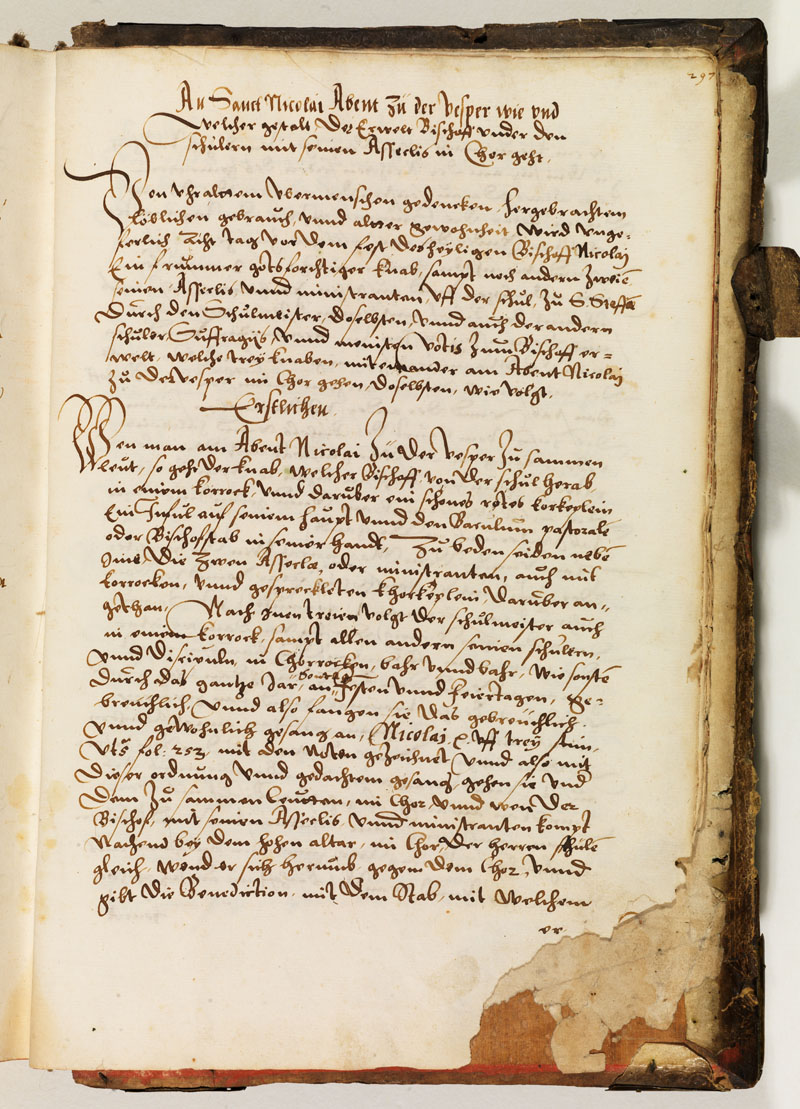 297
An Sanct Nicolai Abent zu der Vesper wie vnd
welcher gestalt Der Erwelt Bischoff vnder den
schülern mit seinen Asseclis in Chor geht.
Von vhraltem vbermenschen gedencken, hergebrachtem
löblichen gebrauch, vnnd altter gewohnheit wird vnge-
ferlich Acht tag vor dem fest des heyligen Bischoff Nicolaj
Ein frummer gotsforchtiger knab, sampt noch andern zweiē
seinen Asseclis vnnd ministranten, vff der schul, zu S. Steffā
Durch den Schulmeister, doselbsten, vnnd auch der andern
schuler, Suffragijs, vnnd meisten votis zum Bischoff er=
welt, welche trey knaben, mitenander am Abent Nicolaj
zu der vesper in Chor gehen, doselbsten, wie volgt.
Erstlichen
Wen man am Abent Nicolai zu der vesper zu sammen
leut, so geht der knab, welcher Bischoff, von der schul herab
in einem korrock, vnnd daruber ein schones rotes korkeplein
Ein Inful auf seinem haupt vnnd den Baculum pastorale
oder Bischofstab in seiner handt, zu beden seiden nebē
Ime, Die zwen Asseclæ, oder ministranten, auch mit
korrocken, vnnd gespreckleten Chorkeplein daruber an=
gethan, Nach Inen treien volgt der schulmeister auch
in einem korrock, sampt allen andern seinen schulern,
vnnd Discipuln, in Chorrocken, bahr vnnd bahr, wie sonstē
durch das gantze Jar, an festen vnnd feiertagen, ge-
breuchlich, vnnd also fangen sie, das gebreuchlich
vnnd gewohnlich gesang an, Nicolaj vff trey stim,
vts fol: 252, mit den Noten gezeichnet vnnd also mit
Dieser ordnung vnnd gedachtem gesang, gehen sie vnd
dem zu sammen leutten, in Chor, vnnd wen der
Bischof, mit seinen Asseclis vnnd ministranten kompt
Nachend bey dem hohen altar, in Chor, der herren stulē
gleich, wend er sich herumb gegem dem Chor, vnnd
gibt die Benediction, mit dem Stab, mit welchem
er